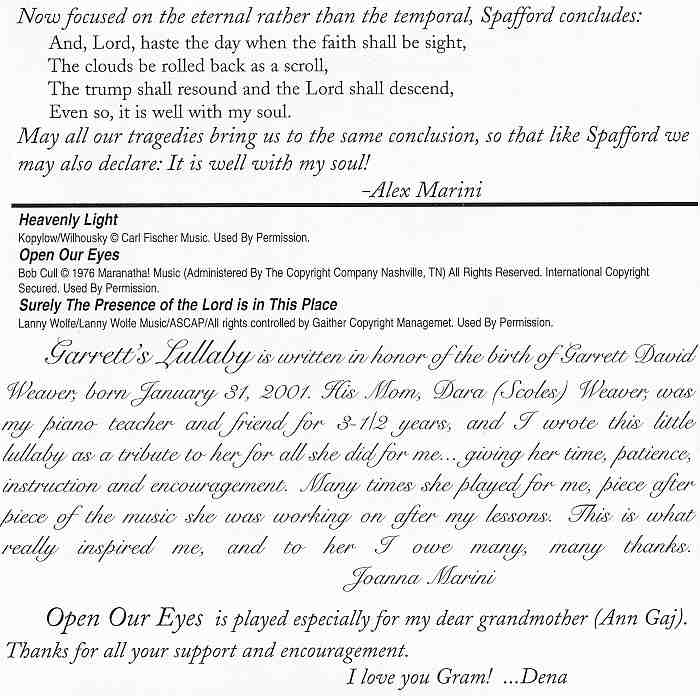 Now focused on the eternal rather than the temporal, Spafford concludes:
And, Lord, haste the day when the faith shall be sight,
The clouds be rolled back as a scroll,
The trump shall resound and the Lord shall descend,
Even so, it is well with my soul.
May all our tragedies bring us to the same conclusion, so that like Spafford we
may also declare: It is well with my soul!
-Alex Marini
Heavenly Light
Kopylow/Wilhousky © Carl Fischer Music. Used By Permission.
Open Our Eyes
Bob Cull © 1976 Maranatha! Music (Administered By The Copyright Company Nashville, TN) All Rights Reserved. International Copyright
Secured. Used By Permission.
Surely The Presence of the Lord is in This Place
Lanny Wolfe/Lanny Wolfe Music/ASCAP/All rights controlled by Gaither Copyright Managemet. Used By Permission.
Garrett's Lullaby is written in honor of the birth of Garrett David
Weaver, born January 31, 2001. His Mom, Dara (Scoles) Weaver, was
my piano teacher and friend for 3-1/2 years, and I wrote this little
lullaby as a tribute to her for all she did for me... giving her time, patience,
instruction and encouragement. Many times she played for me, piece after
piece of the music she was working on after my lessons. This is what
really inspired me, and to her I owe many, many thanks.
Joanna Marini
Open Our Eyes is played especially for my dear grandmother (Ann Gaj).
Thanks for all your support and encouragement.
I love you Gram! ...Dena